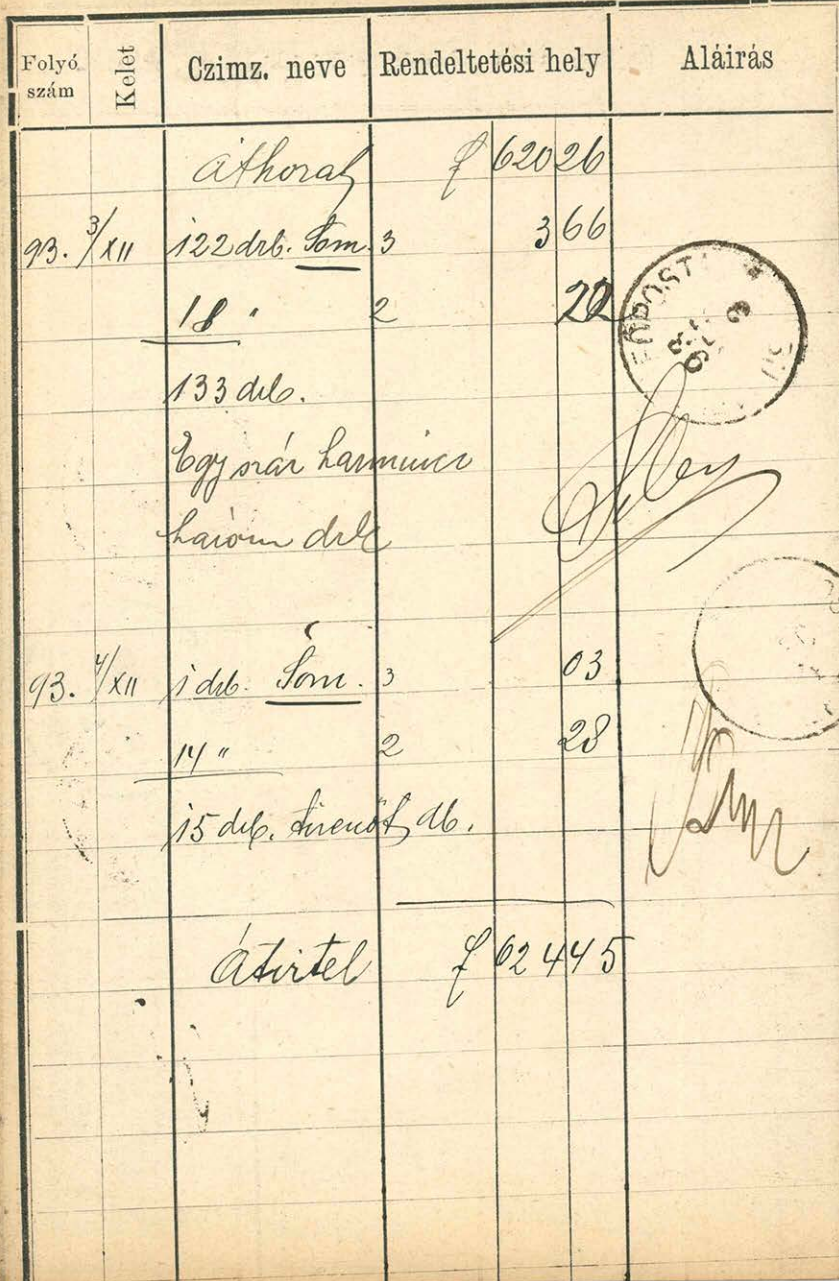 Folyó szám Kelet Czimz. neve Rendeltetési hely Aláirás
Áthozat f 620 26
93. 3/XII 122 drb. Som. 3 3 66
" 2 22
133 drb.
Egy száz harmincz
három drb
93. 4/XII 1 drb. Som. 3 03
14 " 2 28
15 drb. tizenöt db.
Átvitel f 624 45
FŐPOST